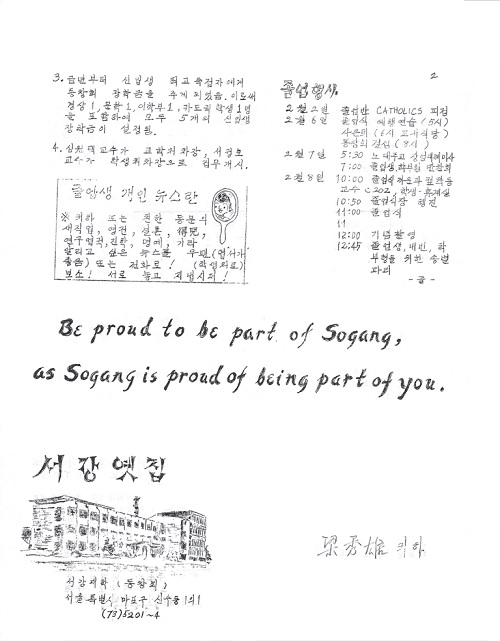 2
3. 금년부터 신입생 최고득점자에게
동창회 장학금을 주게 되었음. 이로써
경상 1, 문학 1, 이학부 1, 카톨릭 학생 1명
을 포함하여 모두 5개의 신입생
장학금이 설정됨.
4.
교수가 학생처화장으로 집무개시.
졸업생 개인 뉴스란
※ 귀하 또는 친한 동문의
새직업, 영전, 결혼, 得兒,
연구업적, 진학, 명예, 기타
알리고 싶은 뉴스를 우편(엽서가
좋음) 또는 전화로! (학생처로)
보소! 서로 돕고 지냅시다!
졸업행사
2월 2일 졸업반 CATHOLICS 피정
2월 6일 졸업식 예행연습 (5시)
사은회 (6시 교내식당)
2월 7일 5:30
7:00 졸업생, 학부형 만찬회
2월 8일 10:00
교수 C202, 학생-휴게실
10:50 졸업식장 행진
11:00 졸업식
11
12:00 기념촬영
12:45 졸업생, 내빈, 학
부형을 위한 송별
파티
- 끝 -
Be proud to be part of Sogang,
as Sogang is proud of being part of you.
서강옛집
서강대학 (동창회)
서울특별시 마포구 신수동 1의1
(73)5201~4
梁秀雄 귀하